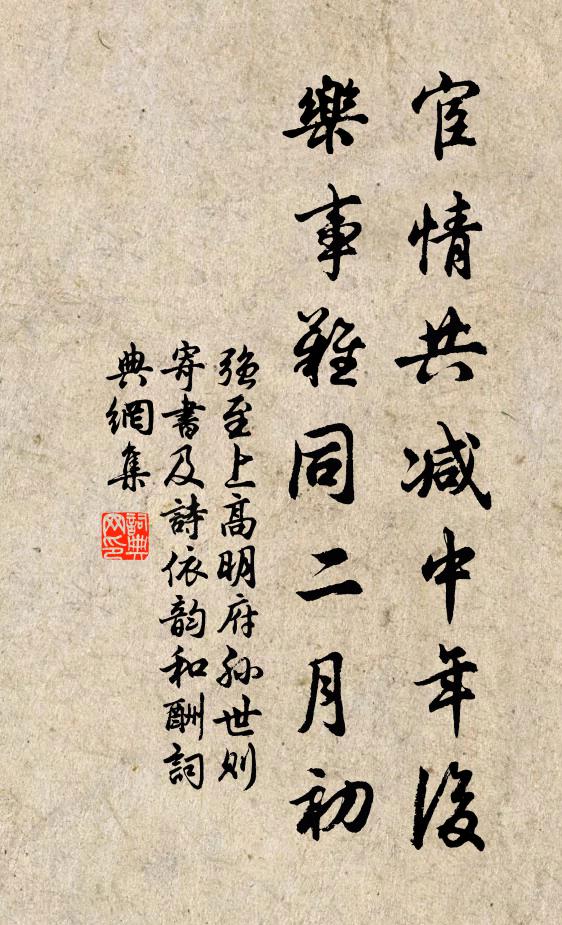 宦情共减中年後
樂事難同二月初
强至上高明府孙世则
寄書及詩依韵和酬詞
典網集
詞典网印